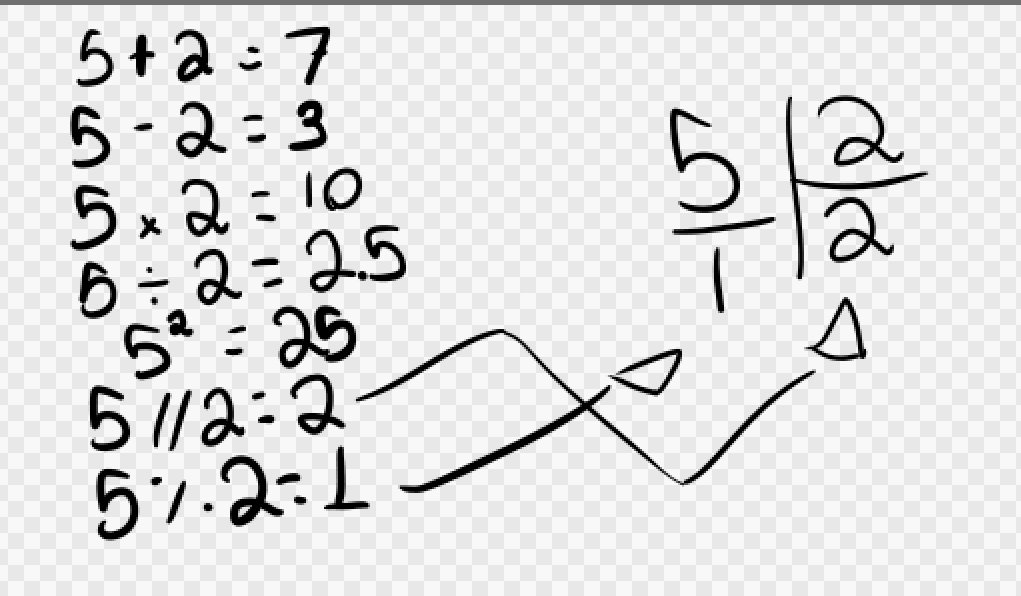 5 + 2 = 7
5 - 2 = 3
5 x 2 = 10
5 ÷ 2 = 2.5
5² = 25
5 // 2 = 2
5 % 2 = 1
5 | 2
1 | 2